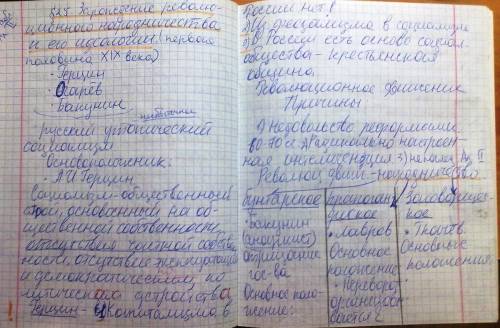 §25 Зарождение револю-
ционного народничества
и его идеологии (первая
половина XIX века)
• Герцин
• Огарёв
• Бакунин
русский утопический
социализм
Основоположник:
А.И Герцин.
Социализм-общественный
строй, основанный на об-
щественной собственности,
отсутствие частной собстве
ности, отсутствие эксплуатации
и демократическим по
литического устройства
Герцин - 1) Капитализма в
России нет.
2) Из феодализма в социализм
3) В России есть основа социал.
общества - крестьянская
община.
Революционное движение
Причины:
1) Недовольство реформами
60-70х 2) Радикально настроен
ная интеллигенция 3)
Революц. движ - народничество
бунтарское
• Бакунин
(анархист)
отрицание
гос-ва.
Основное поло-
жение:
пропаган
диское
• Лавров
Основное
положение
- Переворот
организовы
вается с
Заговорщичес-
кое
• Ткачёв.
Основные
положения: